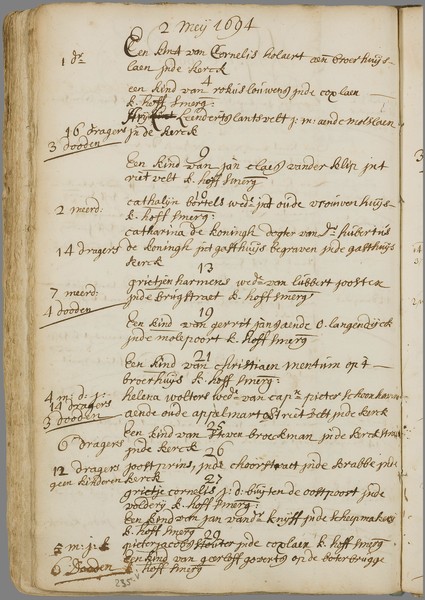 2 Meij 1694
1 dr
Een kint van Cornelis holaert aen broerhuijs-
laen jnde kerck
4
een kind van rokus louwens jnde coxlaen
k. hoff smerg:
leendert lantsvelt j: m: aende molslaen
16 dragers jnde kerck
3 dooden
9
Een kind van jan claes vander klip jnt
rietvelt k. hoff smerg
10
2 meerd:
cathalijn bortels wed: jnt oude vrouwen huijs
k. hoff smerg:
catharina de koningh dogter van dr hubertus
14 dragers de koningh jnt gasthuijs begraven jnde gasthuijs
kerck
13
7 meerd:
grietjen harmens wed: van lubbert joosten
jnde brugstraet k. hoff smerg
4 dooden
19
Een kind van gerrit jan aende o. langendijck
jnde molepoort k. hoff smerg
21
Een kind van christiaen mentum opt
broerhuijs k. hoff smerg:
4 m: d: j:
14 dragers
helena wolters wed: van capn pieter schoonhaven
aende oude appelmarct jnde kerck
3 dooden
25
Een kind van steven broeckman jnde kerckstraet
6 dragers jnde kerck
26
12 dragers
joost prins, jnde choorstraet jnde krabbe jnde
geen kinderen kerck
27
grietje cornelis j: d: buijten de oostpoort jnde
volderij k. hoff smerg:
Een kind van jan vander knijff jnde scheepmakerij
k. hoff smerg
29
5 m: j: k
pieter jacobs slouter jnde coxlaen k. hoff smerg
een kind van geerloff goverts op de boterbrugge
6 dooden
k. hoff smerg
235.v